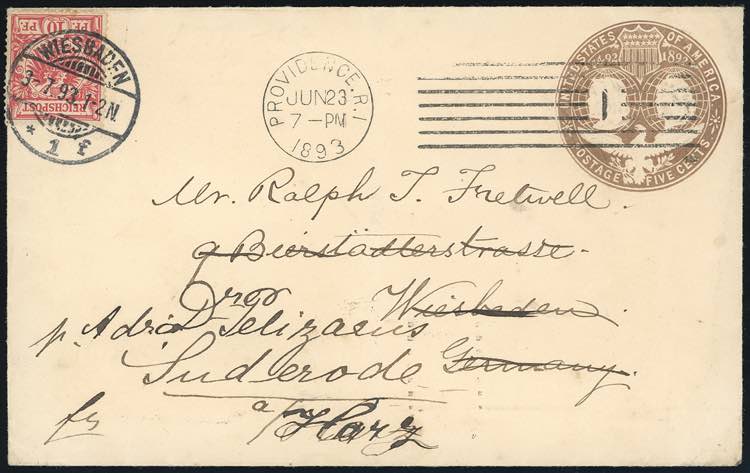 10 PF. 10 PF.
REICHSPOST
WIESBADEN
3 7 93 1-2N
* 1 f
PROVIDENCE. R.I
JUN 23
7-PM
1893
UNITED STATES OF AMERICA
1492 1892
POSTAGE FIVE CENTS
Mr. Ralph T. Fretwell.
9 Bierstädterstrasse.
Wiesbaden
p. Adr.
Germany.
Suderode
a/ Harz
fr